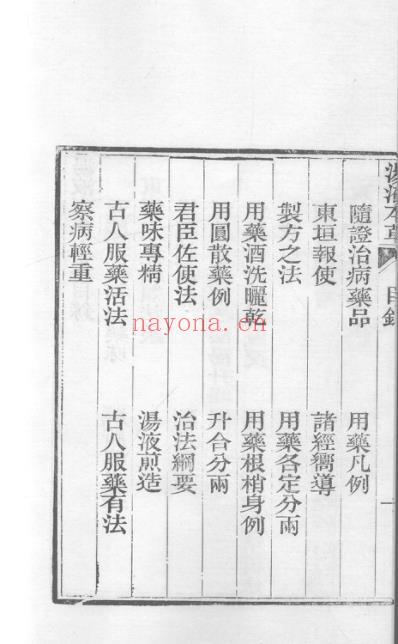 湯液本草 目錄
隨證治病藥品 用藥凡例
東垣報使 諸經嚮導
製方之法 用藥各定分兩
用藥酒洗曬乾 用藥根梢身例
用圓散藥例 升合分兩
君臣佐使法 治法綱要
藥味專精 湯液煎造
古人服藥活法 古人服藥有法
察病輕重
nayona.cn